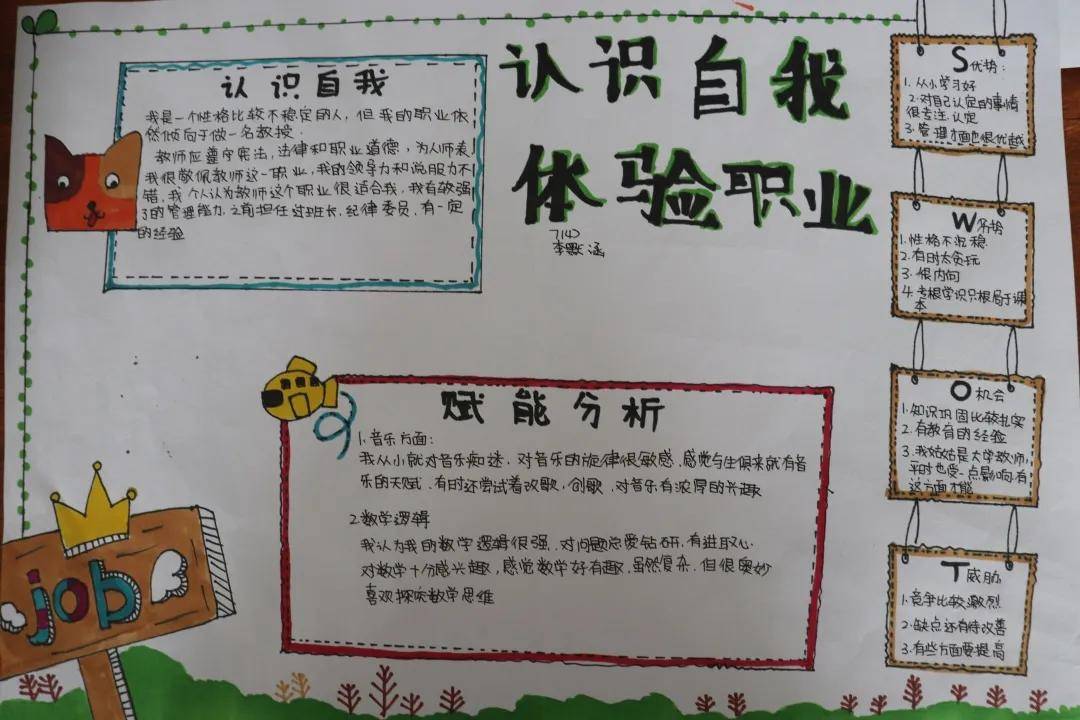 认识自我
体验职业
7140
李默涵
认识自我
我是一个性格比较不稳定的人，但我的职业依
然倾向于做一名教授．
教师应遵守宪法，法律和职业道德，为人师表
我很敬佩教师这一职业，我的领导力和说服力不
错，我个人认为教师这个职业很适合我，我有较强
的管理能力，之前担任过班长、纪律委员，有一定
的经验
赋能分析
1.音乐方面：
我从小就对音乐痴迷．对音乐的旋律很敏感．感觉与生俱来就有音
乐的天赋．有时还尝试着改歌，创歌．对音乐有浓厚的兴趣
2.数学逻辑
我认为我的数学逻辑很强．对问题总爱钻研，有进取心．
对数学十分感兴趣，感觉数学好有趣，虽然复杂．但很奥妙
喜欢探究数学思维
S优势：
1.从小学习好
2.对自己认定的事情
很专注．认定
3.管理方面也很优越
W劣势
1.性格不沉稳
2.有时太贪玩
3.很内向
4.考根学识只根局于课
本
O机会
1.知识巩固比较扎实
2.有教育的经验
3.我姑姑是大学教师，
平时也受一点影响．有
这方面才能
T威胁
1.竞争比较激烈
2.缺点还有待改善
3.有些方面要提高
job